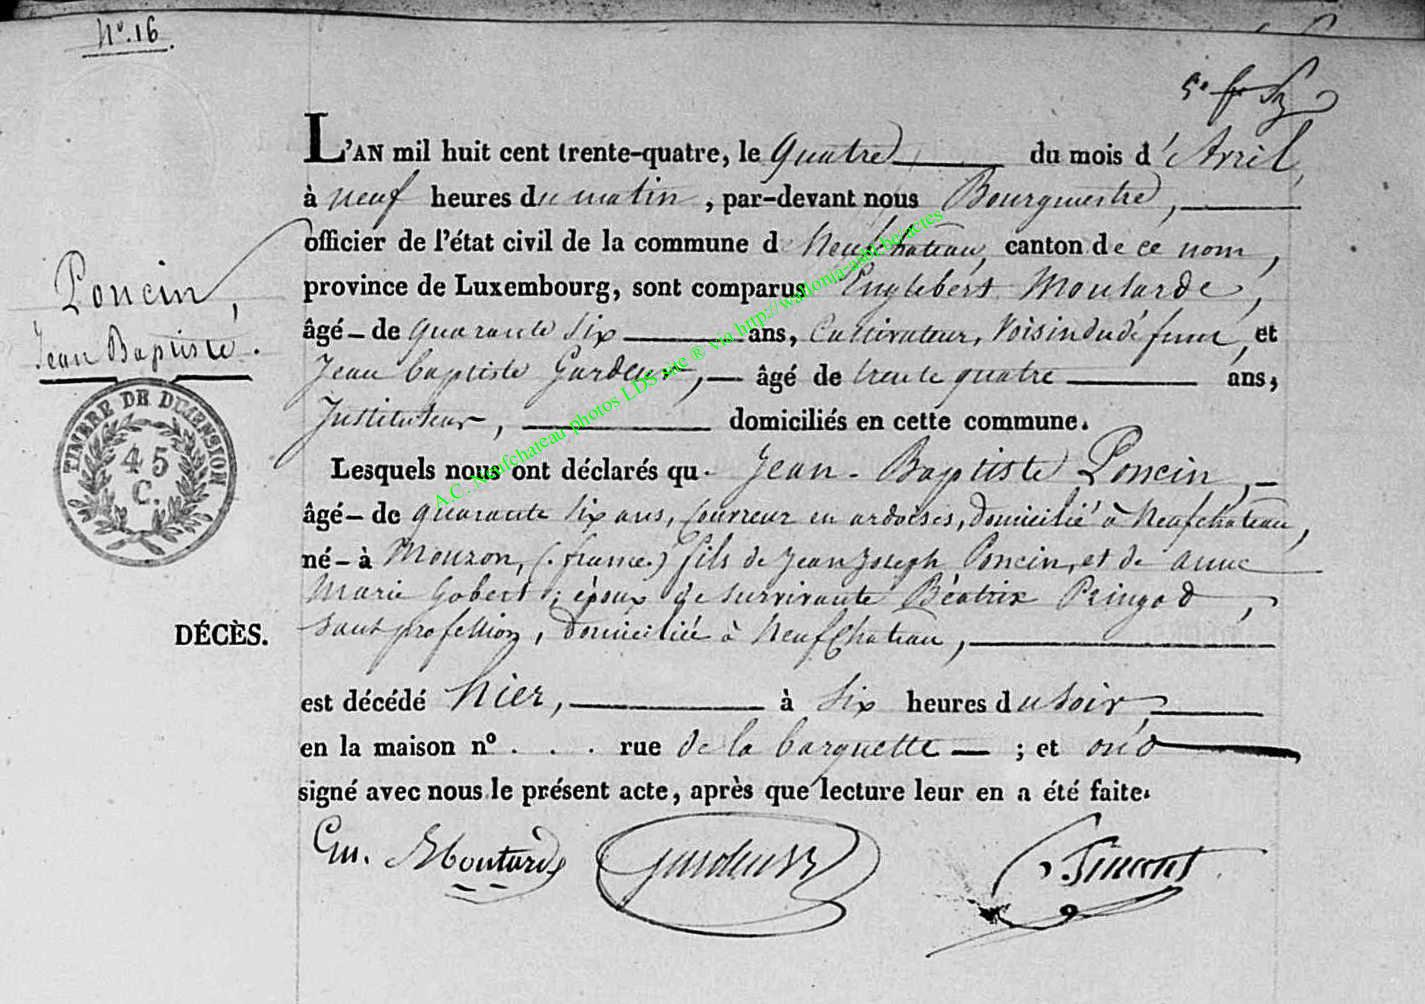 N°. 16
5e f
L'AN mil huit cent trente-quatre, le quatre du mois d'Avril,
à neuf heures du matin, par-devant nous Bourgmestre,
officier de l'état civil de la commune de Neufchateau, canton de ce nom,
province de Luxembourg, sont comparus Englebert Moutarde,
âgé de quarante six ans, Cultivateur, Voisin du défunt, et
Jean baptiste Gardeur, âgé de trente quatre ans,
Instituteur, domiciliés en cette commune.
Lesquels nous ont déclarés que Jean-Baptiste Poncin,
âgé de quarante six ans, Couvreur en ardoises, domicilié à Neufchateau,
né à Mouzon, (france.) fils de Jean Joseph Poncin, et de anne
Marie Gobert ; époux de survivante Béatrix Pringod,
sans profession, domiciliée à Neufchateau,
est décédé hier, à six heures du soir,
en la maison n° . . . rue de la barquette ; et ont
signé avec nous le présent acte, après que lecture leur en a été faite.
Poncin,
Jean Baptiste.
TIMBRE DE DIMENSION
45
C.
DÉCÈS.
En. Moutarde
Gardeur
A.C. Neufchateau photos LDS site ® via http://wallonia-asbl.be/actes